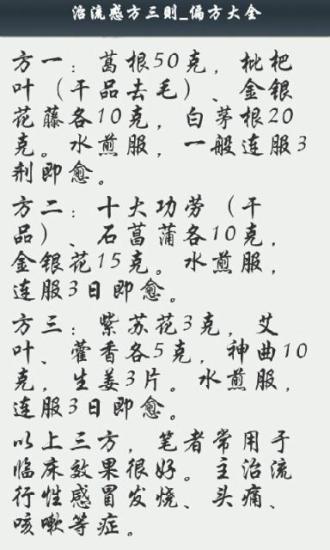 治流感方三则_偏方大全
方一：葛根50克，枇杷
叶（干品去毛）、金银
花藤各10克，白茅根20
克。水煎服，一般连服3
剂即愈。
方二：十大功劳（干
品）、石菖蒲各10克，
金银花15克。水煎服，
连服3日即愈。
方三：紫苏花3克，艾
叶、藿香各5克，神曲10
克，生姜3片。水煎服，
连服3日即愈。
以上三方，笔者常用于
临床效果很好。主治流
行性感冒发烧、头痛、
咳嗽等症。